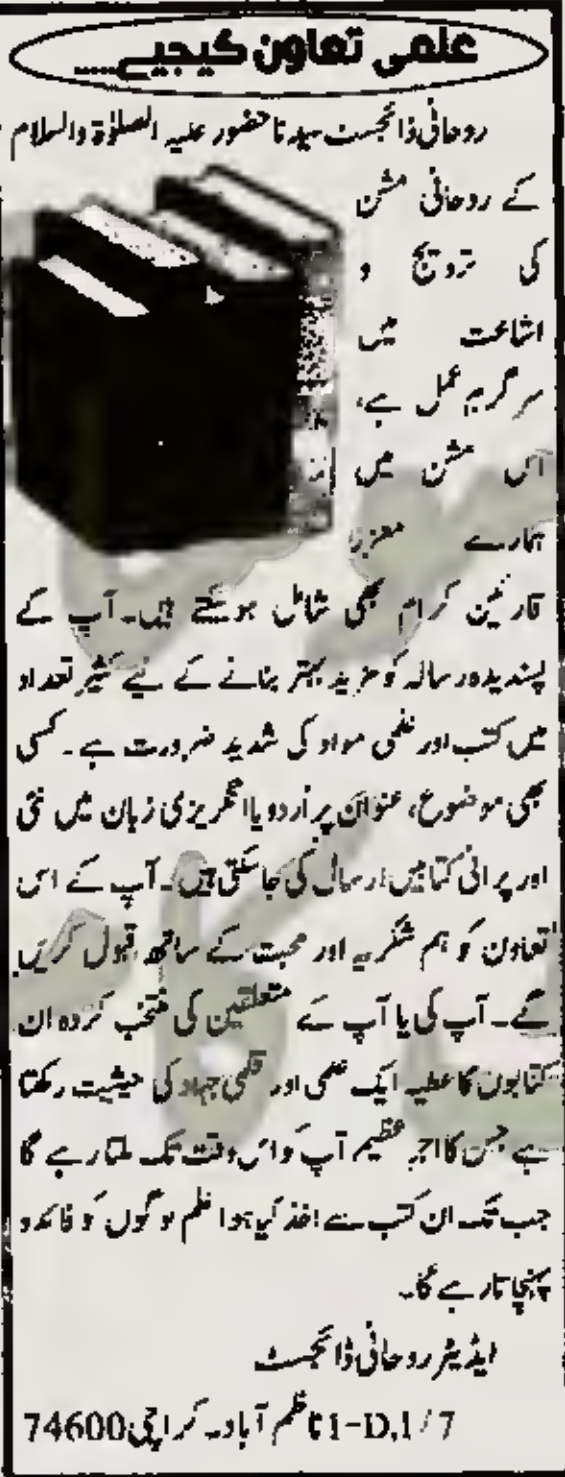 علمی تعاون کیجیے....
روحانی ڈائجسٹ سیدنا حضور علیہ الصلوٰۃ والسلام
کے روحانی مشن
کی ترویج و
اشاعت میں
سرگرم عمل ہے،
اس مشن میں
ہمارے معزز
قارئین کرام بھی شامل ہوسکتے ہیں۔ آپ کے
پسندیدہ رسالہ کو مزید بہتر بنانے کے لیے کثیر تعداد
میں کتب اور علمی مواد کی شدید ضرورت ہے۔ کسی
بھی موضوع، عنوان پر اُردو یا انگریزی زبان میں نئی
اور پرانی کتابیں ارسال کی جاسکتی ہیں۔ آپ کے اس
تعاون کو ہم شکریہ اور محبت کے ساتھ قبول کریں
گے۔ آپ کی یا آپ کے متعلقین کی منتخب کردہ ان
کتابوں کا عطیہ ایک علمی اور قلمی جہاد کی حیثیت رکھتا
ہے جس کا اجر عظیم آپ کو اس وقت تک ملتا رہے گا
جب تک ان کتب سے اخذ کیا ہوا علم لوگوں کو فائدہ
پہنچاتا رہے گا۔
ایڈیٹر روحانی ڈائجسٹ
1-D,1/7 ناظم آباد۔ کراچی 74600